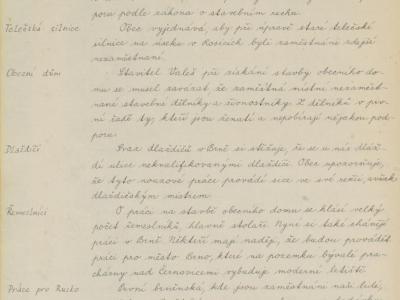 poru podle zákona o stavebním ruchu.
Telečská silnice
Obec vyjednává, aby při úpravě staré telečské
silnice na úseku v Kosicích byli zaměstnáni zdejší
nezaměstnaní.
Obecní dům
Stavitel Valeš při získání stavby obecního do-
mu se musel zavázat, že zaměstná místní nezaměst-
nané stavební dělníky a živnostníky. Z dělníků v prv-
ní řadě ty, kteří jsou ženatí a nepobírají nějakou pod-
poru.
Dlaždiči
Svaz dlaždičů v Brně si stěžuje, že se u nás dláž-
dí ulice nekvalifikovanými dlaždiči. Obec upozorňuje,
že tyto nouzové práce provádí sice ve své režii, avšak
dlaždičským mistrem.
Řemeslníci
O práci na stavbě obecního domu se hlásí velký
počet řemeslníků, hlavně stolaři. Nyní si také shánějí
práci v Brně. Někteří mají naději, že budou provádět
práci pro město Brno, které na pozemku bývalé pra-
chárny nad Černovicemi vybuduje moderní letiště.
Práce pro Rusko
První brněnská, kde jsou zaměstnáni naši lidé,